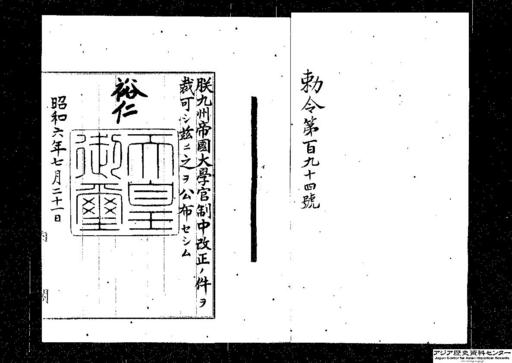 勅令第百九十四號
朕九州帝國大學官制中改正ノ件ヲ
裁可シ茲ニ之ヲ公布セシム
裕仁
天皇御璽
昭和六年七月二十一日
内閣
アジア歴史資料センター
Japan Center for Asian Historical Records